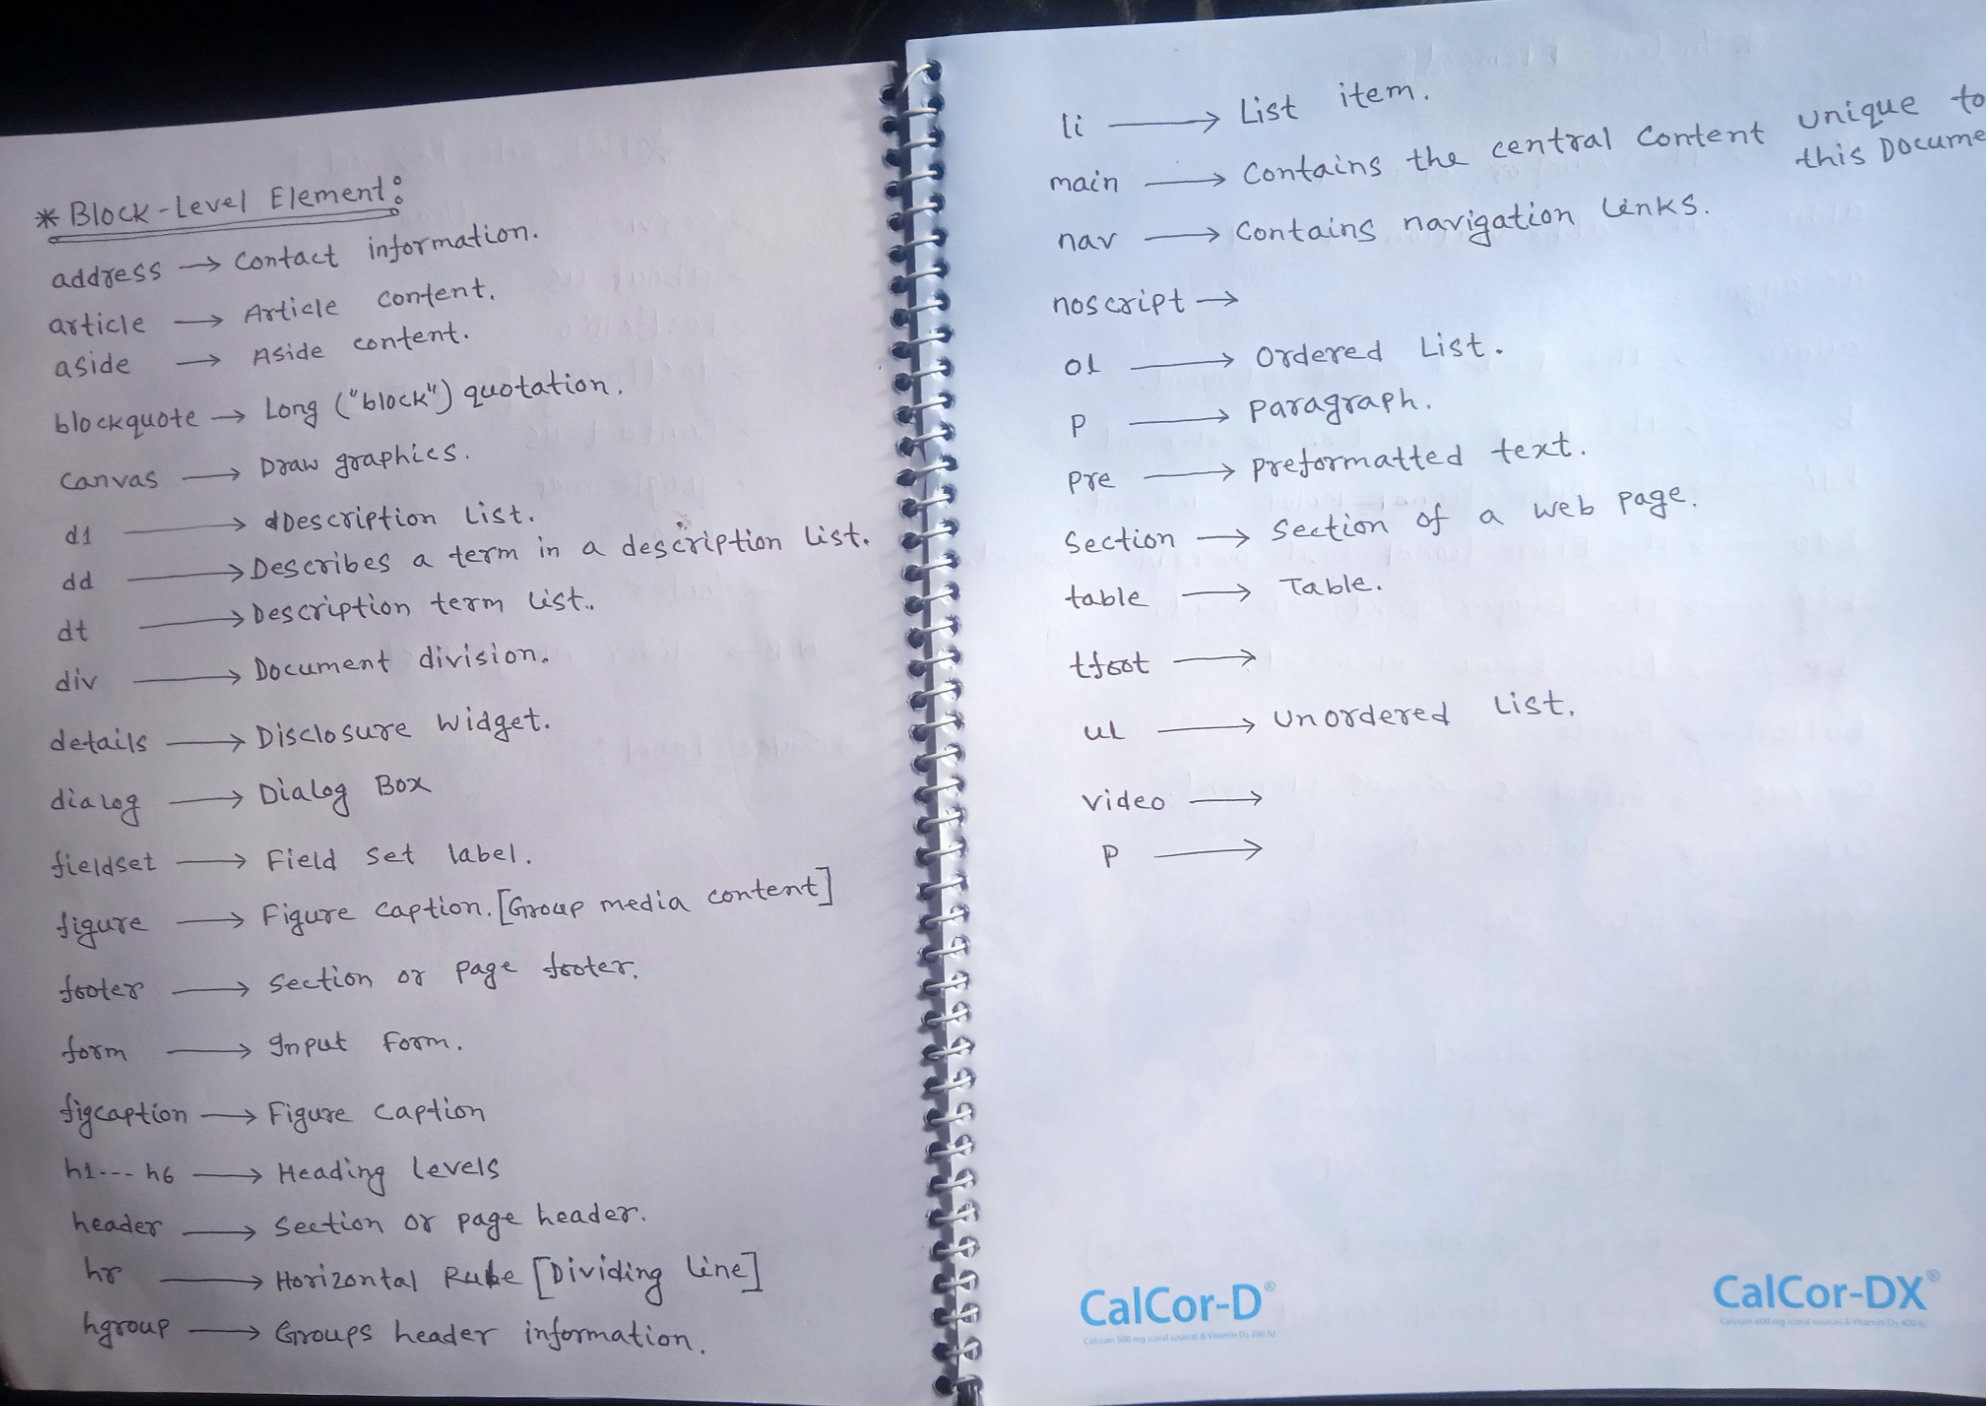 * Block-Level Element:
address → Contact information.
article → Article content.
aside → Aside content.
blockquote → Long ("block") quotation.
canvas → Draw graphics.
d1 → dDescription List.
dd → Describes a term in a description List.
dt → Description term List.
div → Document division.
details → Disclosure Widget.
dialog → Dialog Box
fieldset → Field set label.
figure → Figure caption. [Group media content]
footer → Section or page footer.
form → Input Form.
figcaption → Figure Caption
h1--- h6 → Heading Levels
header → Section or page header.
hr → Horizontal Rule [Dividing Line]
hgroup → Groups header information.
li → List item.
main → Contains the central Content unique to
this Docume
nav → Contains navigation Links.
noscript →
ol → Ordered List.
P → paragraph.
pre → preformatted text.
Section → Section of a web page.
table → Table.
tfoot →
ul → Unordered List.
video →
P →
CalCor-D®
Calcium 500 mg (coral source) & Vitamin D3 200 IU
CalCor-DX®
Calcium 600 mg (coral source) & Vitamin D3 400 IU